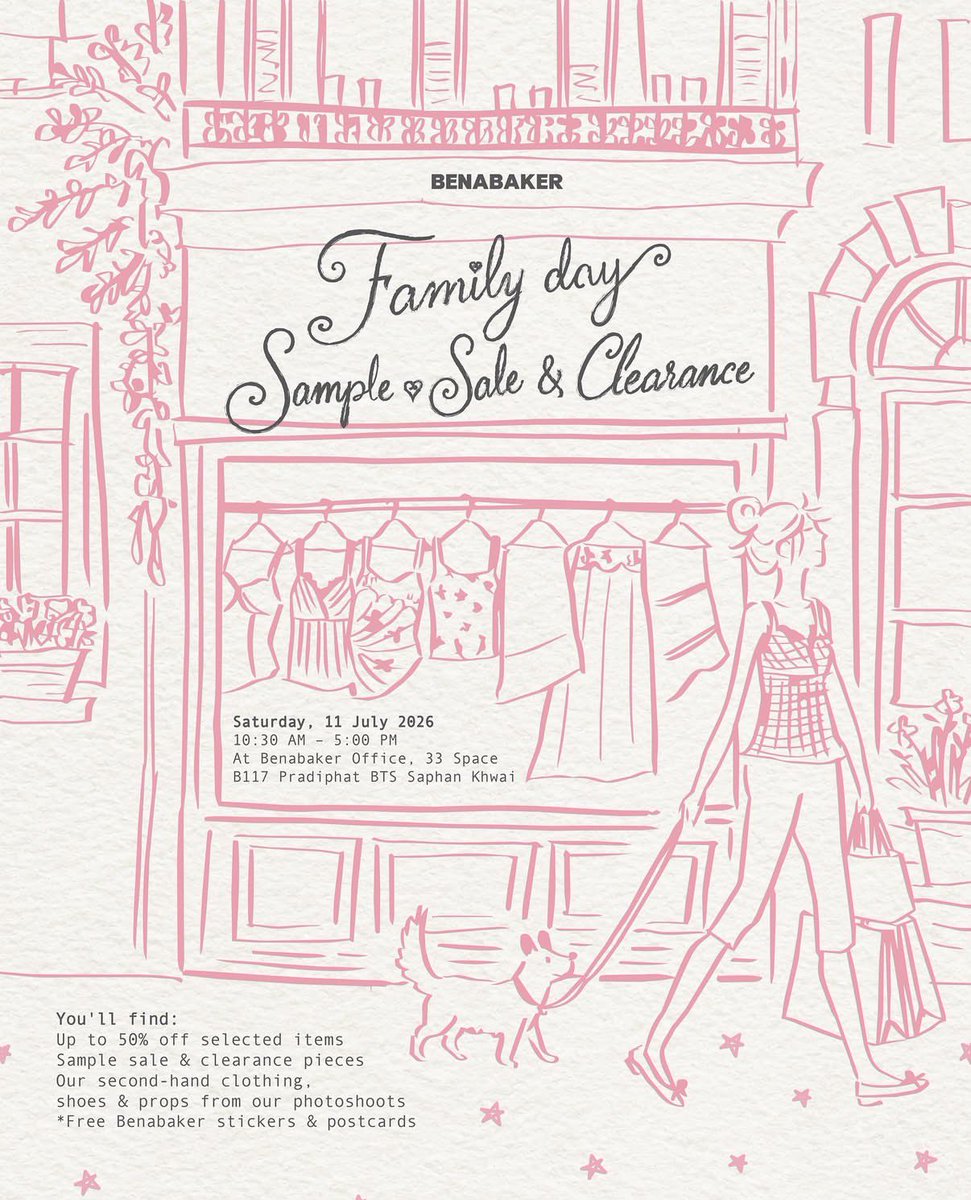 BENABAKER
Family day
Sample Sale & Clearance
Saturday, 11 July 2026
10:30 AM – 5:00 PM
At Benabaker Office, 33 Space
B117 Pradiphat BTS Saphan Khwai
You'll find:
Up to 50% off selected items
Sample sale & clearance pieces
Our second-hand clothing,
shoes & props from our photoshoots
*Free Benabaker stickers & postcards